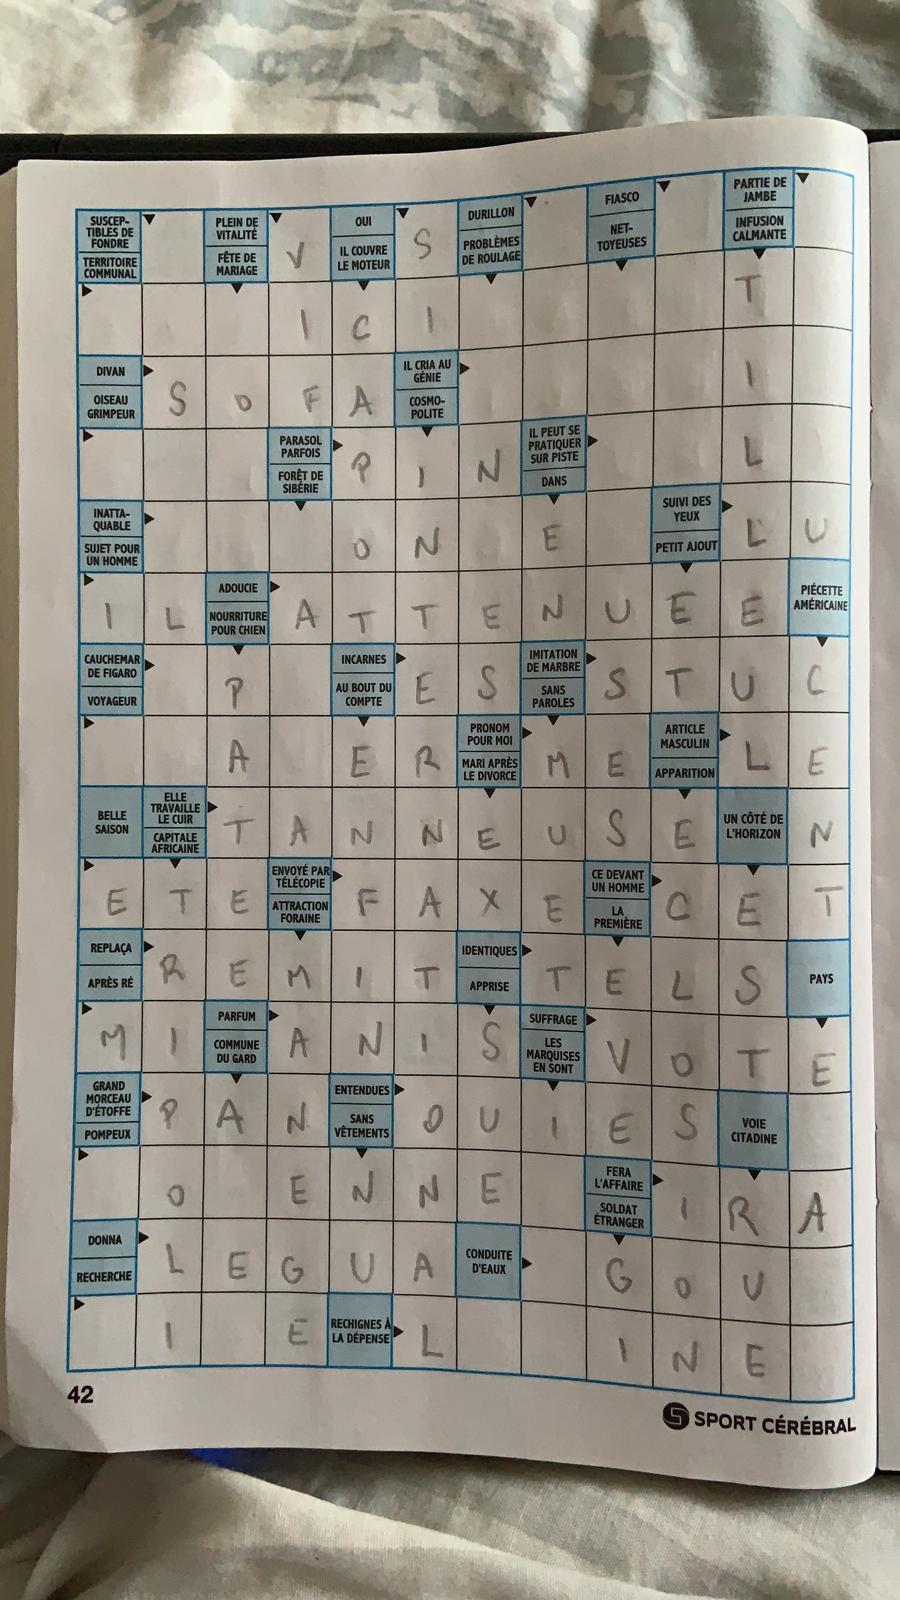 SUSCEP-
TIBLES DE
FONDRE
TERRITOIRE
COMMUNAL
PLEIN DE
VITALITÉ
FÊTE DE
MARIAGE
V
OUI
IL COUVRE
LE MOTEUR
S
DURILLON
PROBLÈMES
DE ROULAGE
FIASCO
NET-
TOYEUSES
PARTIE DE
JAMBE
INFUSION
CALMANTE
I C I T
DIVAN
OISEAU
GRIMPEUR
S O F A
IL CRIA AU
GÉNIE
COSMO-
POLITE
I
PARASOL
PARFOIS
FORÊT DE
SIBÉRIE
P I N
IL PEUT SE
PRATIQUER
SUR PISTE
DANS
L
INATTA-
QUABLE
SUJET POUR
UN HOMME
O N E
SUIVI DES
YEUX
PETIT AJOUT
L U
I L
ADOUCIE
NOURRITURE
POUR CHIEN
A T T E N U E E
PIÉCETTE
AMÉRICAINE
CAUCHEMAR
DE FIGARO
VOYAGEUR
P
INCARNES
AU BOUT DU
COMPTE
E S
IMITATION
DE MARBRE
SANS
PAROLES
S T U C
A E R
PRONOM
POUR MOI
MARI APRÈS
LE DIVORCE
M E
ARTICLE
MASCULIN
APPARITION
L E
BELLE
SAISON
ELLE
TRAVAILLE
LE CUIR
CAPITALE
AFRICAINE
T A N N E U S E
UN CÔTÉ DE
L'HORIZON
N
E T E
ENVOYÉ PAR
TÉLÉCOPIE
ATTRACTION
FORAINE
F A X E
CE DEVANT
UN HOMME
LA
PREMIÈRE
C E T
REPLAÇA
APRÈS RÉ
R E M I T
IDENTIQUES
APPRISE
T E L S
PAYS
M I
PARFUM
COMMUNE
DU GARD
A N I S
SUFFRAGE
LES
MARQUISES
EN SONT
V O T E
GRAND
MORCEAU
D'ÉTOFFE
POMPEUX
P A N
ENTENDUES
SANS
VÊTEMENTS
O U I E S
VOIE
CITADINE
O E N N E
FERA
L'AFFAIRE
SOLDAT
ÉTRANGER
I R A
DONNA
RECHERCHE
L E G U A
CONDUITE
D'EAUX
G O U
I E
RECHIGNES À
LA DÉPENSE
L I N E
42
SPORT CÉRÉBRAL